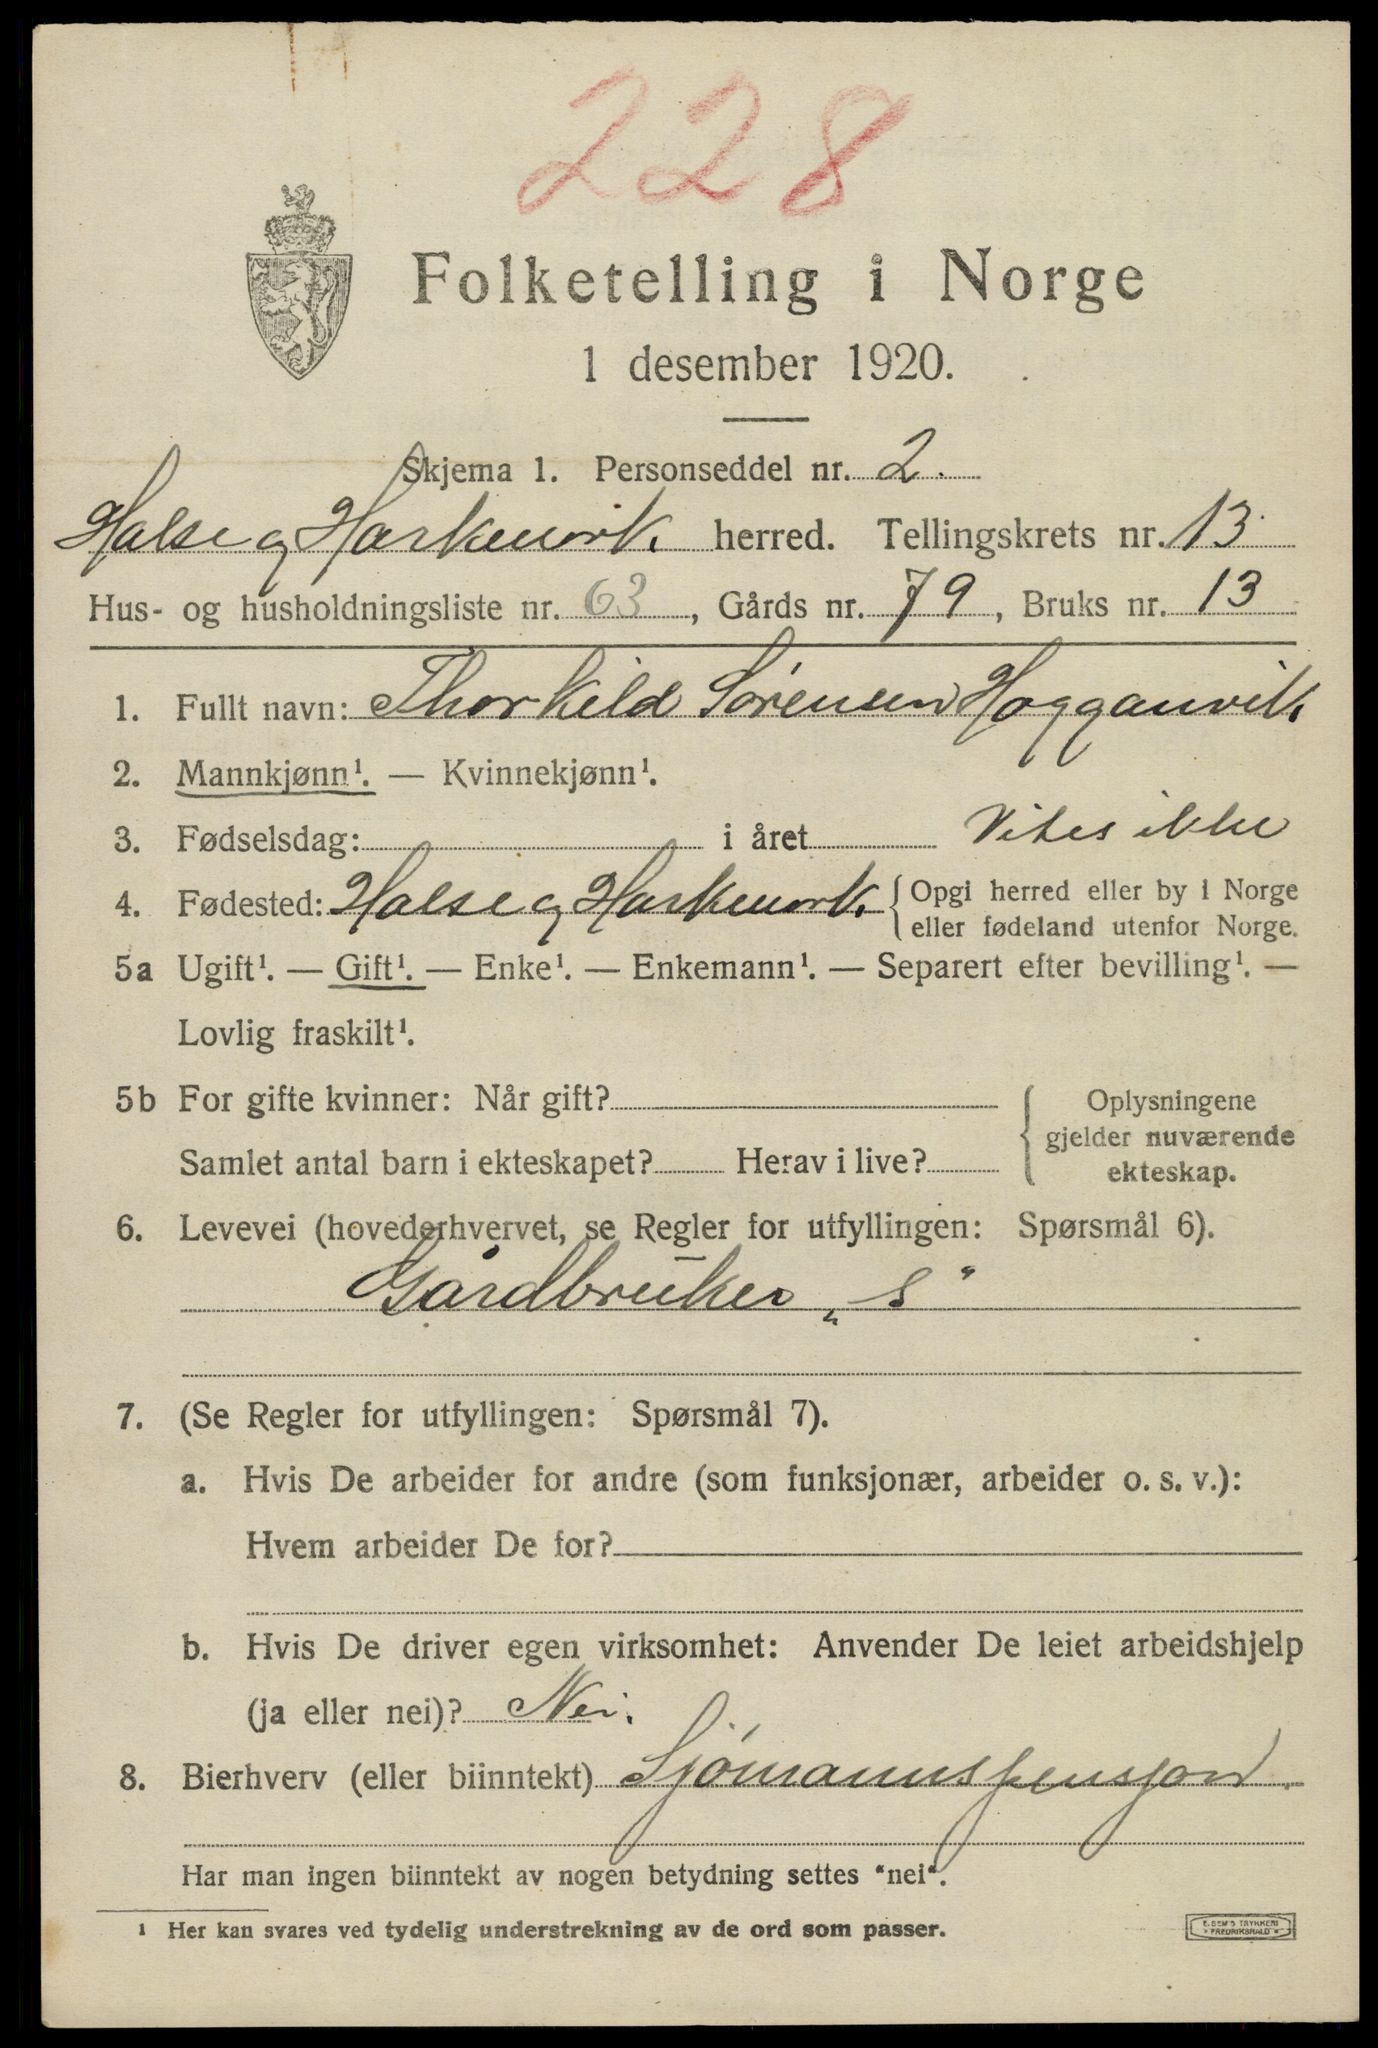 228
Folketelling i Norge
1 desember 1920.
Skjema 1. Personseddel nr. 2.
Halse og Harkmark herred. Tellingskrets nr. 13.
Hus- og husholdningsliste nr. 63, Gårds nr. 79, Bruks nr. 13
1. Fullt navn: Thorkild Sørensen Hogganvik
2. Mannkjønn¹. — Kvinnekjønn¹.
3. Fødselsdag: i året Vites ikke
4. Fødested: Halse og Harkmark { Opgi herred eller by i Norge
eller fødeland utenfor Norge.
5a Ugift¹. — Gift¹. — Enke¹. — Enkemann¹. — Separert efter bevilling¹. —
Lovlig fraskilt¹.
5b For gifte kvinner: Når gift?
Samlet antal barn i ekteskapet? Herav i live?
{ Oplysningene
gjelder nuværende
ekteskap.
6. Levevei (hovederhvervet, se Regler for utfyllingen: Spørsmål 6).
Gårdbruker „S“
7. (Se Regler for utfyllingen: Spørsmål 7).
a. Hvis De arbeider for andre (som funksjonær, arbeider o. s. v.):
Hvem arbeider De for?
b. Hvis De driver egen virksomhet: Anvender De leiet arbeidshjelp
(ja eller nei)? Nei.
8. Bierhverv (eller biinntekt) Sjømannspensjon.
Har man ingen biinntekt av nogen betydning settes "nei".
¹ Her kan svares ved tydelig understrekning av de ord som passer.
E. SEM'S TRYKKERI
FREDRIKSHALD